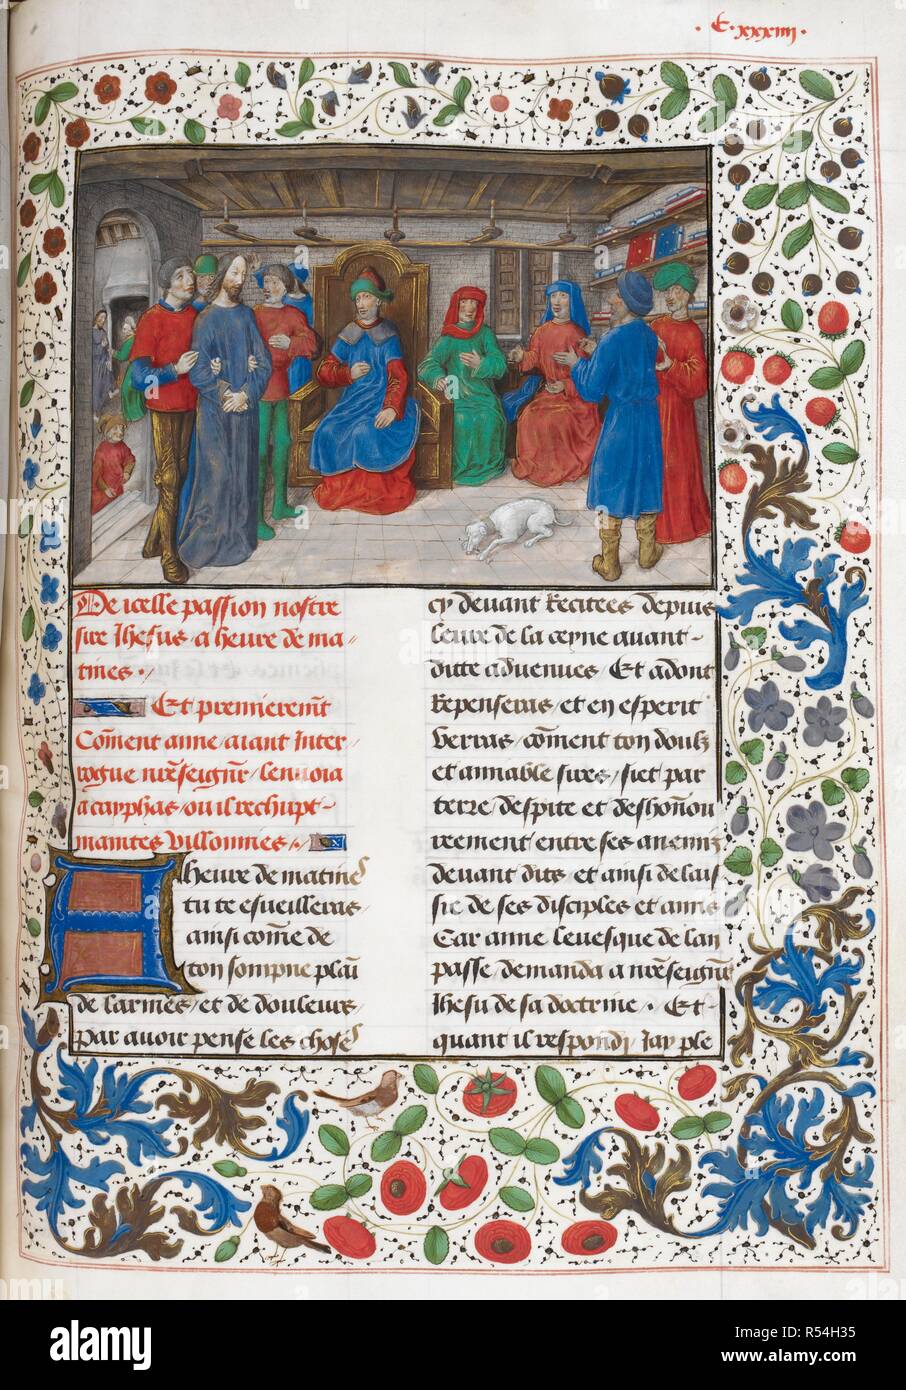 · C · xxxiiii ·
De icelle passion nostre
sire Jhesus / a heure de ma-
tines ·/·
Et premieremt
Coment anne / aiant Inter-
rogue nreseignr / lenuoia
a cayphas / ou il rechupt-
maintes Villonnies ·/·
A heure de matines
tu te esueilleras /
ainsi come de
ton sompne plain
de larmes / et de douleurs /
Par auoir pense les choses
cy deuant Recitees depuis
leure de la ceyne auant-
ditte aduenues / Et adont
Repenseras / et en esperit
Verras / coment ton doulz
et amiable sires / siet par
terre / despite et deshonou
reement entre ses anemiz
deuant dits / et ainsi delais
sie de ses disciples et amis
Car anne leuesque de lan
passe / demanda a nreseignr
Jhesu de sa doctrine ·/· Et-
quant il respondi / Jay ple
alamy
alamy
Image ID: R54H35
www.alamy.com